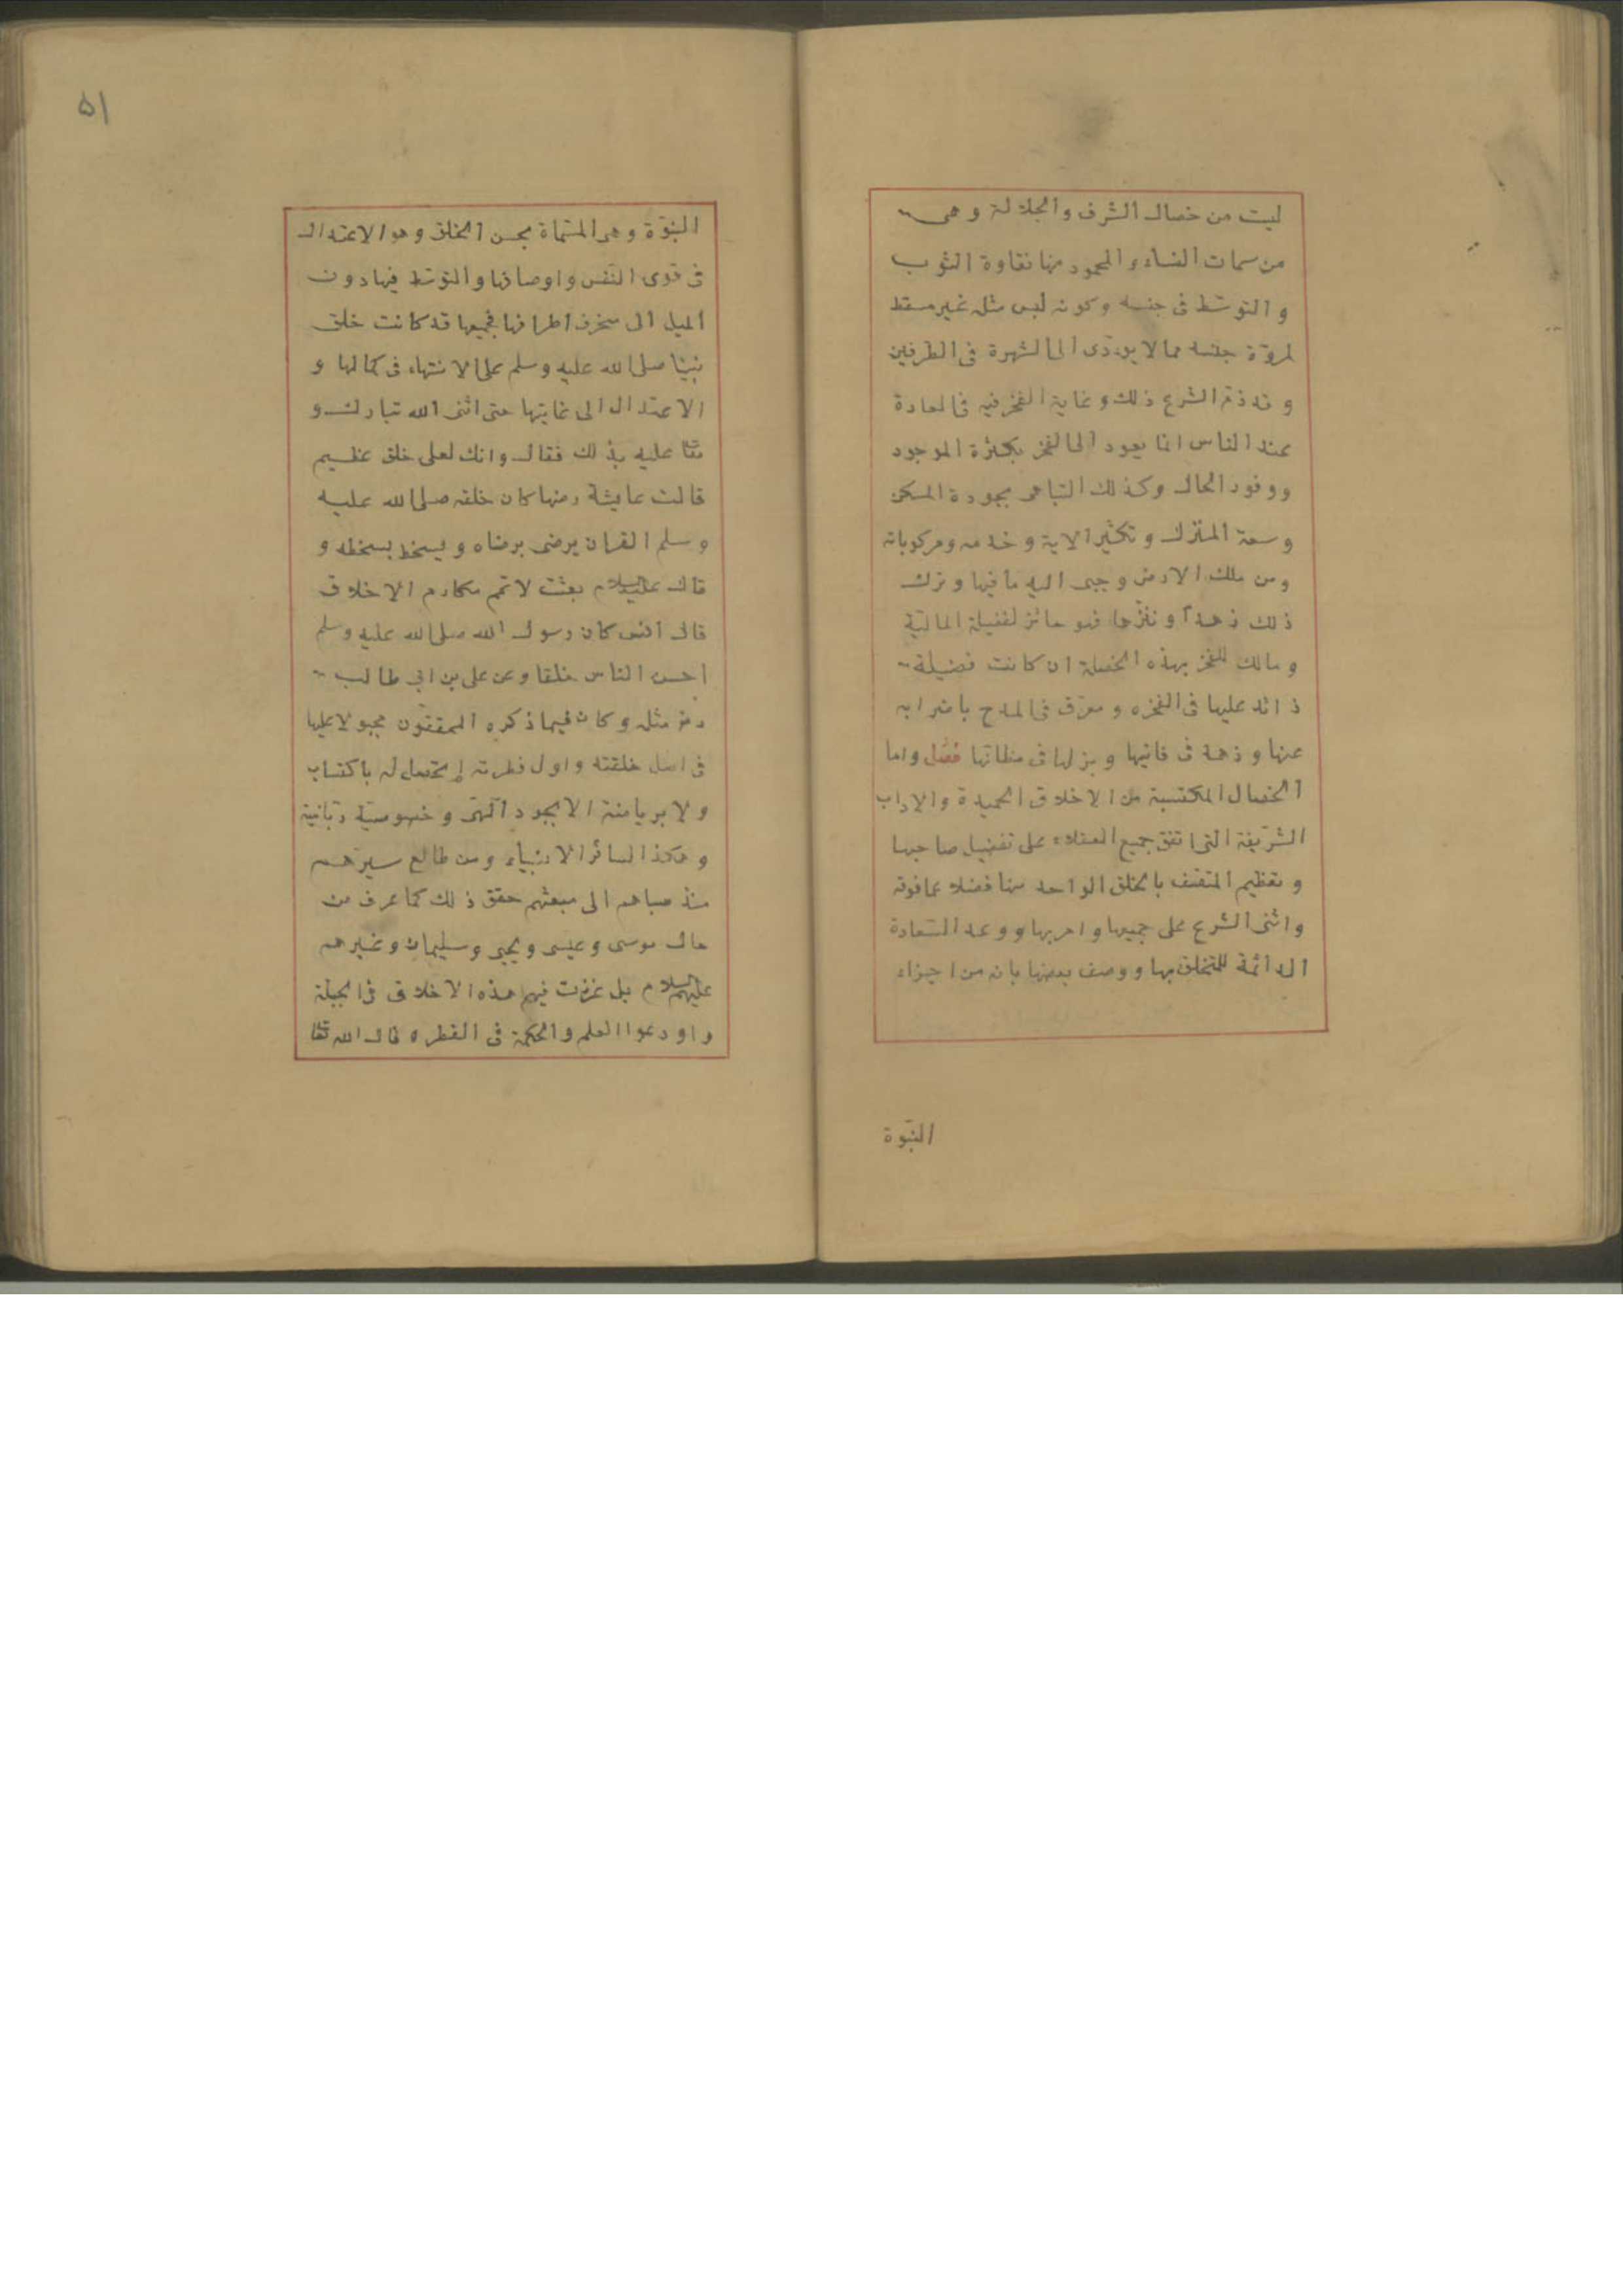 ليست من خصال الشرف والجلالة وهى
من سمات النساء والمحمود منها نقاوة الثوب
والتوسّط فى جنسه وكونه لبس مثله غير مسقط
لمروّة جنسه مما لا يودّى الى الشهرة فى الطرفين
وقد ذمّ الشرع ذلك وغاية الفخر فيه فى العادة
عند الناس انما يعود الى الفخر بكثرة الموجود
ووفور الحال وكذلك التباهى بجودة المسكن
وسعة المنزل وتكثير الاية وخدمه ومركوباته
ومن ملك الارض وجبى اليه ما فيها وترك
ذلك زهدا وتنزّها فهو حائز لفضيلة المالية
ومالك للفخر بهذه الخصلة ان كانت فضيلة
زائد عليها فى الفخره ومعرّق فى المدح باضرابه
عنها وزهده فى فانيها وبزلها فى مظانها فصل واما
الخصال المكتسبة من الاخلاق الحميدة والاداب
الشريفة التى اتفق جميع العقلاء على تفضيل صاحبها
وتعظيم المتصف بالخلق الواحد منها فضلا عما فوقه
واثنى الشرع على جميعها وامر بها ووعد السّعادة
الدائمة للتخلق بها ووصف بعضها بانه من اجزاء
النبّوة
٥١
النبّوّة وهى المسمّاة بحسن الخلق وهو الاعتدال
فى قوى النّفس واوصافها والتوسّط فيها دون
الميل الى منحرف اطرافها فجميعها قد كانت خلق
نبيّنا صلى الله عليه وسلم على الانتهاء فى كمالها و
الاعتدال الى غايتها حتى اثنى الله تبارك و
تعا عليه بذلك فقال وانك لعلى خلق عظيم
قالت عايشة رضها كان خلقه صلى الله عليه
وسلم القران يرضى برضاه ويسخط بسخطه و
قال عليه السلام بعثت لاتمم مكارم الاخلاق
قال انس كان رسول الله صلى الله عليه وسلم
احسن الناس خلقا وعن على بن ابى طالب
رضه مثله وكان فيما ذكره المحققون مجبولا عليها
فى اصل خلقته واول فطرته لم تحصل له باكتساب
ولا برياضة الا بجود الهى وخصوصيّة ربّانية
وهكذا لسائر الانبياء ومن طالع سيرهم
منذ صباهم الى مبعثهم حقق ذلك كما عرف من
حال موسى وعيسى ويحيى وسليمان وغيرهم
عليهم السلام بل غرزت فيهم هذه الاخلاق فى الجبلة
واودعوا العلم والحكمة فى الفطره قال الله تعا